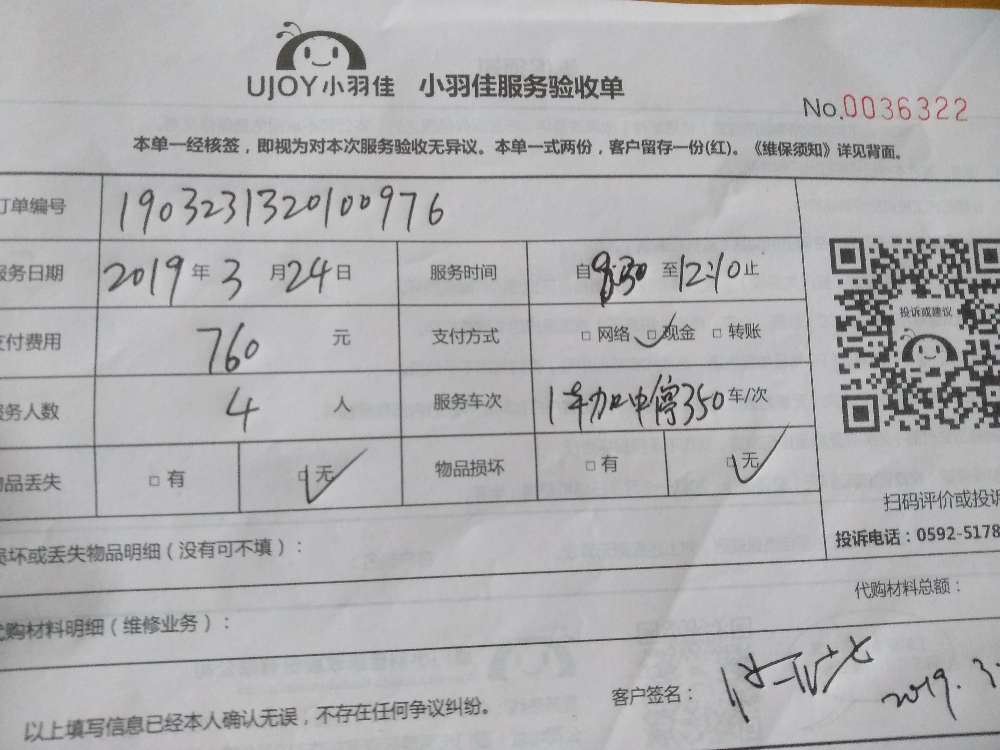 UJOY小羽佳 小羽佳服务验收单
No.0036322
本单一经核签，即视为对本次服务验收无异议。本单一式两份，客户留存一份(红)。《维保须知》详见背面。
订单编号 1903231320100976
服务日期 2019年3月24日 服务时间 自8:30至12:10止
支付费用 760元 支付方式 □网络 □现金 □转账
服务人数 4人 服务车次 1车加中停350车/次
物品丢失 □有 □无 物品损坏 □有 □无
投诉或建议
扫码评价或投诉
投诉电话：0592-5178
损坏或丢失物品明细（没有可不填）：
代购材料总额：
代购材料明细（维修业务）：
客户签名： 2019.3.
以上填写信息已经本人确认无误，不存在任何争议纠纷。